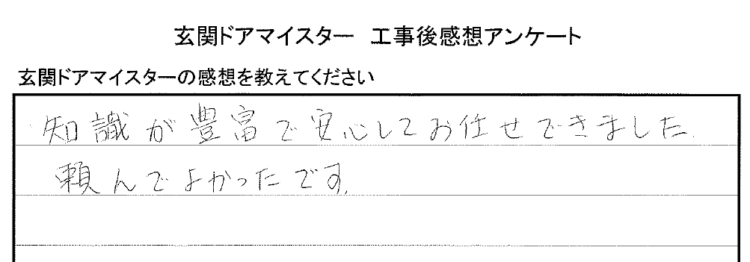 玄関ドアマイスター 工事後感想アンケート
玄関ドアマイスターの感想を教えてください
知識が豊富で安心してお任せできました.
頼んでよかったです.